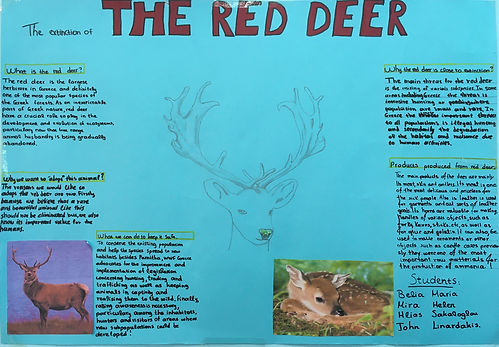 The extinction of THE RED DEER
What is the red deer?
The red deer is the largest
herbivore in Greece and definitely
one of the most popular species of
the Greek forests. As an inextricable
part of Greek nature, red deer
have a crucial role to play in the
development and evolution of ecosystems,
particularly now that free range
animal husbandry is being gradually
abandoned.
Why we want to "adopt" this animal?
The reasons we would like to
adopt the red deer are two. Firstly
because we believe that a rare
and beautiful animal like this
should not be eliminated but, we also
know its important value for the
humans.
What we can do to keep it safe.
To conserve the existing population
and help the species spread to new
habitats besides Parnitha, WWF Greece
advocates for the improvement and
implementation of legislation
concerning hunting, trading and
trafficking as well as keeping
animals in captivity and
realising them to the wild, finally,
raising awareness is necessary,
particularly among the inhabitants,
hunters and visitors of areas where
new subpopulations could be
developed.
Why the red deer is close to extinction?
The main threats for the red deer
is the mixing of various subspecies. In some
areas including Greece the threat is
intensive hunting as
population are small and rare. In
Greece the important threat
to all populations, is illegal hunting
and secondarily the degradation
of the habitat and nuisance due
to human activities.
Products produced from red deer.
The main products of the deer are mainly
its meat, skin and antlers. Its meat is one
of the most delicious and precious for
the sick people. Also is leather is used
for garments and all sorts of leather
goods. Its horns are valuable for making
handles of various objects, such as
forks, knives, sticks, etc. as well as
for glue and gelatin. It can also, be
used to make ornaments or other
objects such as candle cases. Previously
they were one of the most
important raw materials for
the production of ammonia!
Students:
Belia Maria
Mira Helen
Hlias Sakaloglou
John Linardakis.